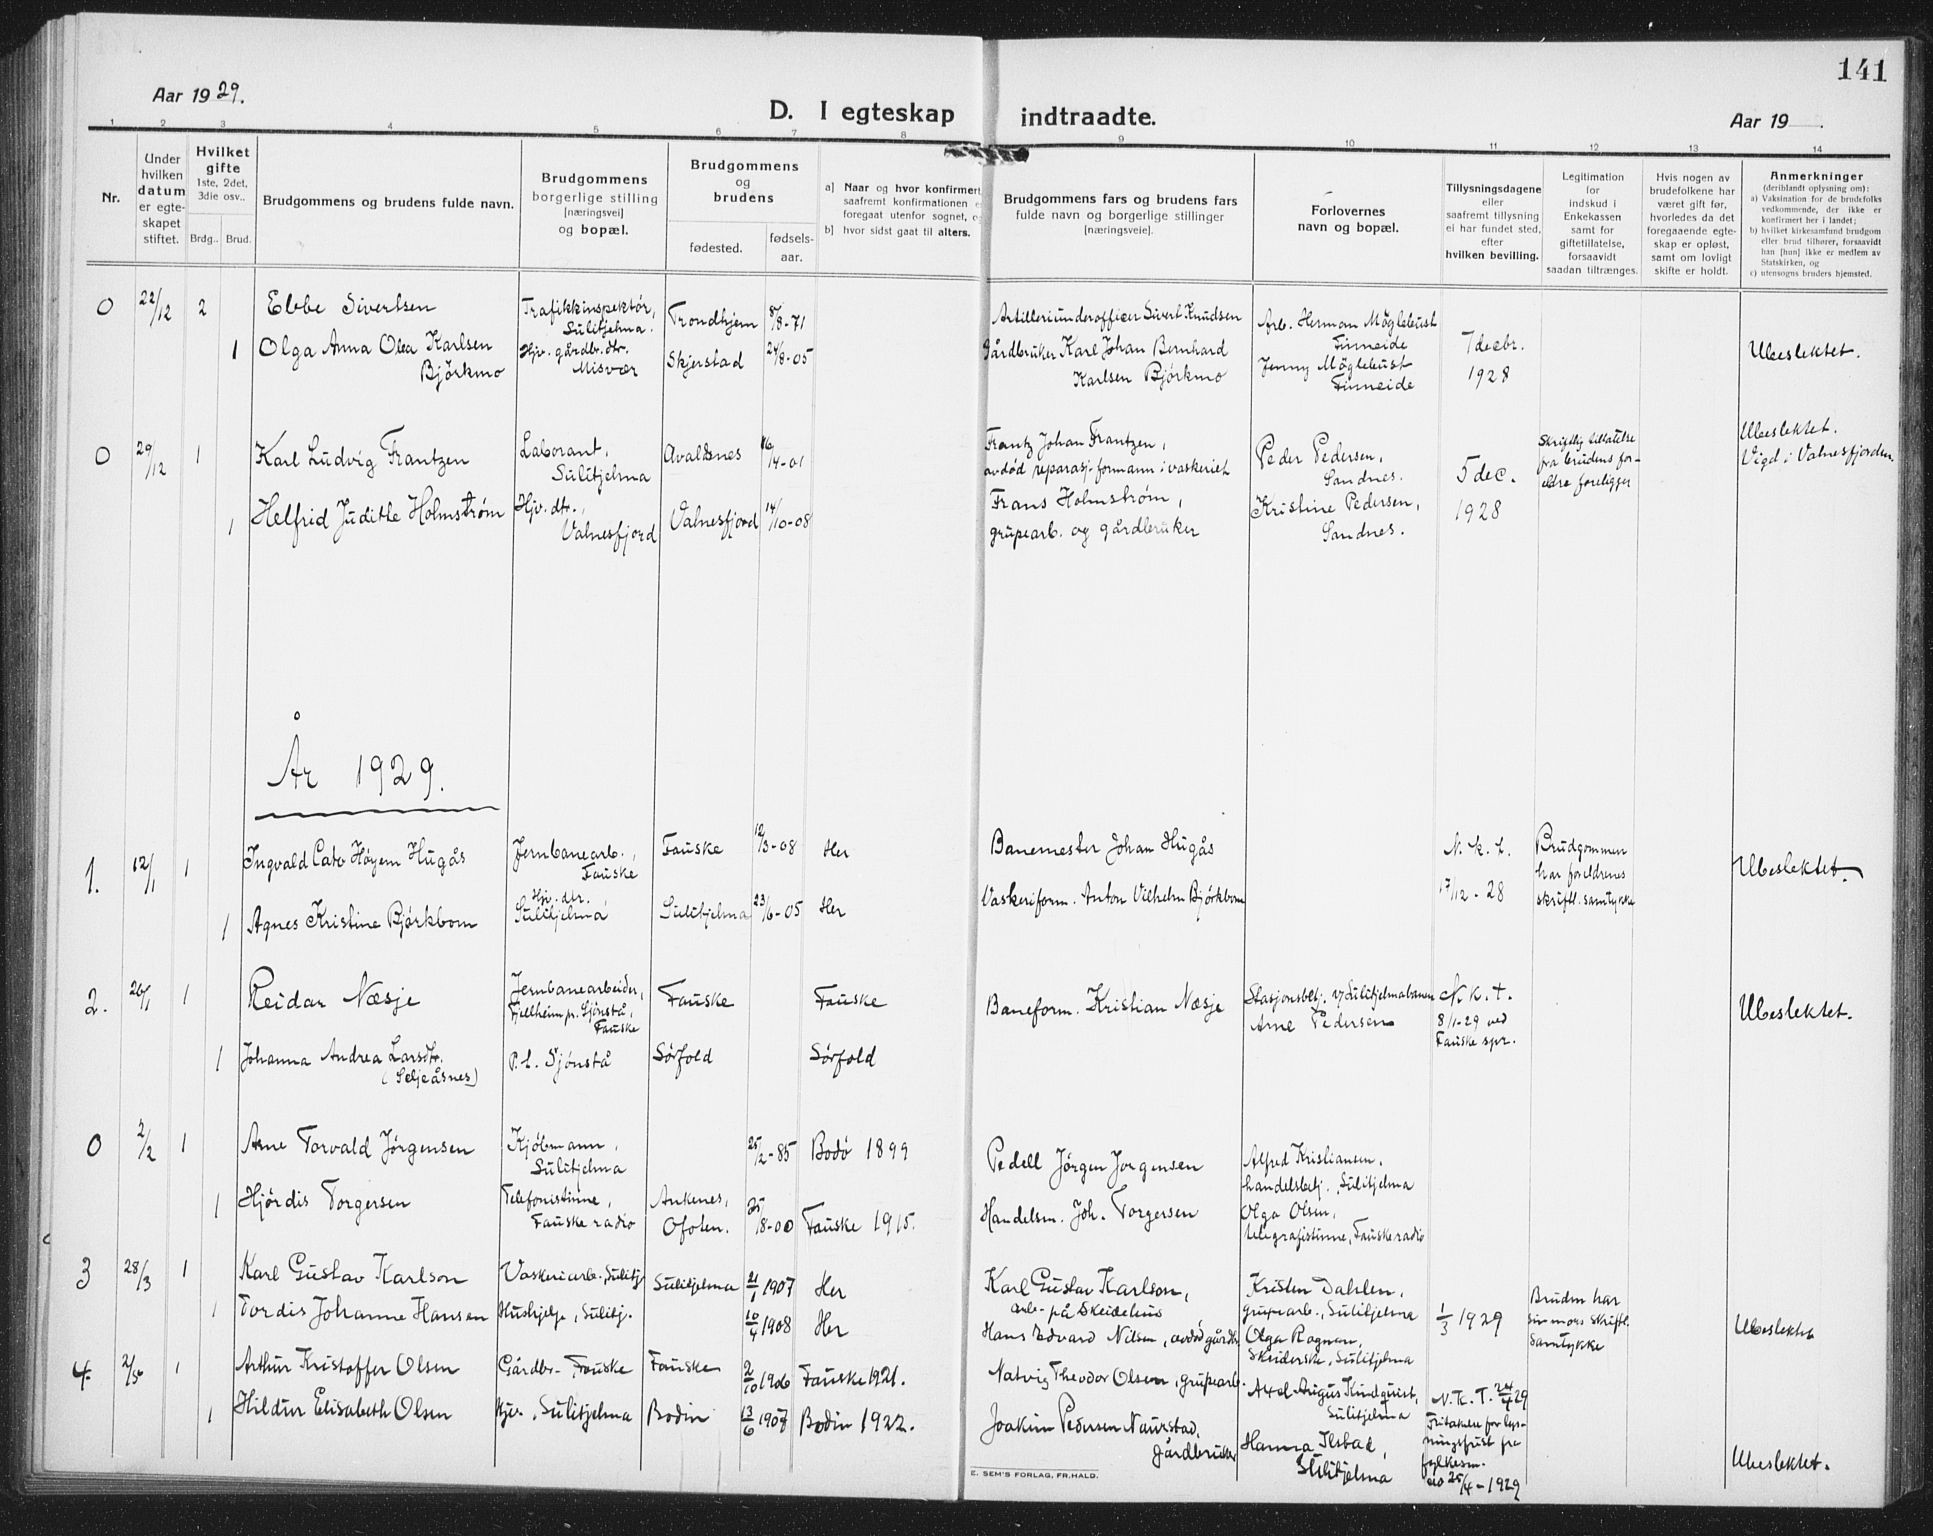 141
Aar 1929.
D. I egteskap indtraadte.
Aar 19 .
1 2 3 4 5 6 7 8 9 10 11 12 13 14
Nr.
Under
hvilken
datum
er egte-
skapet
stiftet.
Hvilket
gifte
1ste, 2det,
3die osv..
Brdg.. Brud.
Brudgommens og brudens fulde navn.
Brudgommens
borgerlige stilling
[næringsvei]
og bopæl.
Brudgommens
og
brudens
fødested.
fødsels-
aar.
a] Naar og hvor konfirmert,
saafremt konfirmationen e
foregaat utenfor sognet, o
b] hvor sidst gaat til alters.
Brudgommens fars og brudens fars
fulde navn og borgerlige stillinger
[næringsveie].
Forlovernes
navn og bopæl.
Tillysningsdagene
eller
saafremt tillysning
ei har fundet sted,
efter
hvilken bevilling.
Legitimation
for
indskud i
Enkekassen
samt for
giftetillatelse,
forsaavidt
saadan tiltrænges.
Hvis nogen av
brudefolkene har
været gift før,
hvorledes da det
foregaaende egte-
skap er opløst,
samt om lovligt
skifte er holdt.
Anmerkninger
(deriblandt oplysning om):
a) Vaksination for de brudefolks
vedkommende, der ikke er
konfirmert her i landet;
b) hvilket kirkesamfund brudgom
eller brud tilhører, forsaavidt
han [hun] ikke er medlem av
Statskirken, og
c) utensogns bruders hjemsted.
0 22/12 2 Ebbe Sivertsen
Trafikkinspektør,
Sulitjelma.
Trondhjem 8/8-71
Artilleriunderofficer Sivert Knudsen
Arb. Herman Møglebust
Finneide
7 decbr.
1928
1 Olga Anna Olea Karlsen
Bjørkmo
Hjv. gårdbr. dtr.
Misvær
Skjerstad 24/8-05
Gårdbruker Karl Johan Bernhard
Karlsen Bjørkmo
Jenny Møglebust
Finneide
Ubeslektet.
0 29/12 1 Karl Ludvig Frantzen
Laborant,
Sulitjelma
Avaldsnes 16/4-01
Frantz Johan Frantzen,
avdød reparasj. formann i vaskeriet
Peder Pedersen,
Sandnes.
5 dec.
1928
Skriftlig tillatelse
fra brudens for-
eldre foreligger
Ubeslektet.
Vigd i Valnesfjorden
1 Helfrid Judithe Holmstrøm
Hjv. dtr.,
Valnesfjord
Valnesfjord 14/10-08
Frans Holmstrøm,
grubearb. og gårdbruker
Kristine Pedersen,
Sandnes.
År 1929.
1. 12/1 1 Ingvald Cato Høyem Hugås
Jernbanearb.,
Fauske
Fauske 12/3-08 Her
Banemester Johan Hugås
N. k. t.
17/12-28
Brudgommen
har foreldrenes
skriftl. samtykke
Ubeslektet.
1 Agnes Kristine Bjørkbom
Hjv. dtr.
Sulitjelma
Sulitjelma 23/6-05 Her
Vaskeriform. Anton Vilhelm Bjørkbom
2. 26/1 1 Reidar Næsje
Jernbanearbeider,
Fjellheim pr. Sjønstå,
Fauske
Fauske Fauske
Baneform. Kristian Næsje
Stasjonsbetj. v/Sulitjelmabanen
Arne Pedersen
N. k. t.
8/1-29 ved
Fauske spr.
Ubeslektet.
1 Johanna Andrea Larsdtr.
(Seljeåsnes)
P. t. Sjønstå Sørfold Sørfold
0 2/2 1 Arne Torvald Jørgensen
Kjøbmann,
Sulitjelma
25/2-85 Bodø 1899
Pedell Jörgen Jörgensen
Alfred Kristiansen,
handelsbetj., Sulitjelma
1 Hjørdis Torgersen
Telefonistinne,
Fauske radio
Ankenes,
Ofoten.
25/8-00 Fauske 1915.
Handelsm. Joh. Torgersen
Olga Olsen,
telegrafistinne, Fauske radio
3 28/3 1 Karl Gustav Karlson
Vaskeriarb., Sulitj.
Sulitjelma 21/1 1907 Her
Karl Gustav Karlson,
arb. på Skeidehus
Kristen Dahlen,
grubearb., Sulitjelma
1/3 1929
Bruden har
sin mors skriftl.
samtykke
Ubeslektet
1 Tordis Johanne Hansen
Hushjelp, Sulitj.
10/4 1908 Her
Hans Edvard Nilsen, avdød gårdbr.
Olga Ragnan,
Skeiderske, Sulitjelma
4. 2/5 1 Arthur Kristoffer Olsen
Gårdbr., Fauske Fauske 2/10 1906 Fauske 1921.
Natvig Theodor Olsen, grubearb.
Axel August Kindquist,
Sulitjelma
N. K. T. 24/4 29
Fritakelse for lys-
ningsfrist fra
fylkesm.
av 25/4-1929
1 Hildur Elisabeth Olsen
Hjv., Sulitjelma Bodin 13/6 1907 Bodin 1922.
Joakim Pedersen Naurstad,
Gårdbruker
Hanna Ilstad,
Sulitjelma
Ubeslektet.
E. SEM'S FORLAG, FR.HALD.